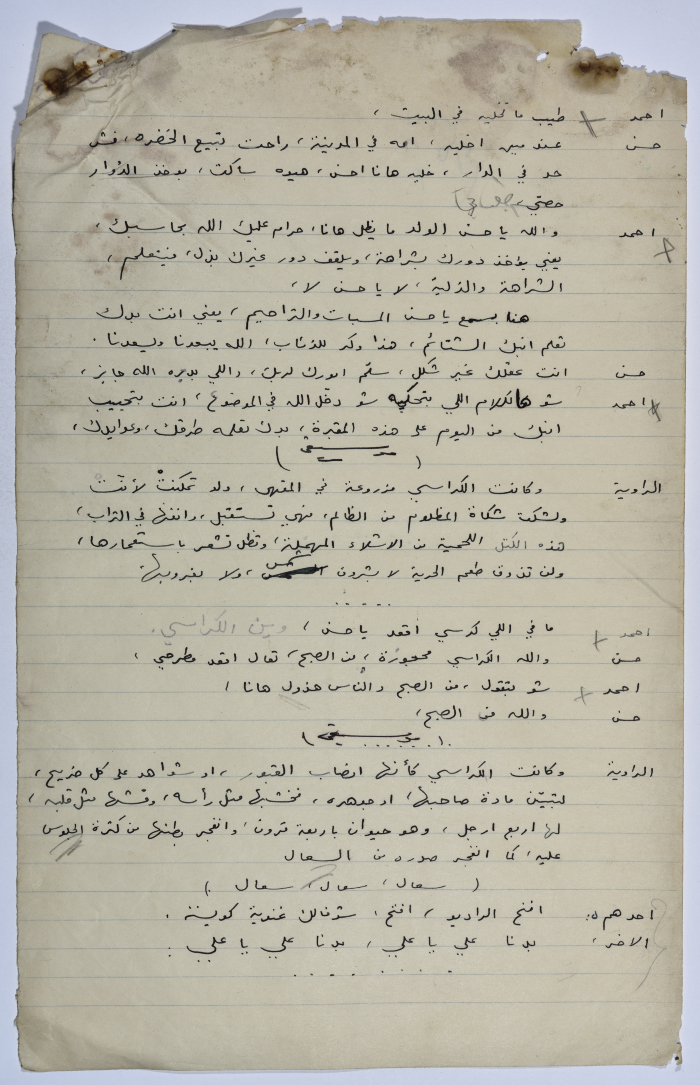 احمد طيب ما تخليه في البيت ،
حسن عند مين اخليه ، امه في المدينة ، راحت تبيع الخضره ، فش
حد في الدار ، خليه هانا احسن ، هيوه ساكت ، بوخذ الدوار
حصتي
احمد والله يا حسن الولد ما يظل هانا ، حرام عليك الله بحاسبك ،
يعني يوخذ دورك بشراهة ، ويلقف دور غيرك بذل ، فبتعلم ،
الشراهة والذلية ، لا يا حسن لا ،
هنا بسمع يا حسن المسبات والتراحيم ، يعني انت بدك
تعلم ابنك الشتائم ، هذا وكر للذئاب ، الله يبعدنا ويبعدنا .
حسن انت عقلك غير شكل ، سلم امورك لربك ، واللي بديره الله جايز ،
احمد شو هالكلام اللي بتحكيه شو دخل الله في الموضوع ، انت بتجيب
ابنك من اليوم على هذه المقبرة ، بدك تعلمه طرقك ، وعوايدك ،
( موسيقى )
الراوية وكانت الكراسي مزروعة في المقهى ، ولو تمكنت لأنت
ولشكت شكاة المظلوم من الظالم ، فهي تستقبل ، وانفها في التراب ،
هذه الكتل اللحمية من الاشلاء المهملة ، وتظل تشعر باستعمارها ،
ولن تذوق طعم الحرية لا بشروق شمس ، ولا بغروبها
.....
احمد ما في اللي كرسي اقعد يا حسن ، وين الكراسي .
حسن والله الكراسي محجوزة ، من الصبح ، تعال اقعد مطرحي ،
احمد شو بتقول ، من الصبح والناس هذول هانا !
حسن والله من الصبح ،
( موسيقى )
الراوية وكانت الكراسي كأنها انصاب القبور ، او شواهد على كل ضريح ،
لتبين مادة صاحبها ، او جوهره ، فخشبها مثل رأسه ، وقشها مثل قلبه ،
لها اربع ارجل ، وهو حيوان باربعة قرون ، وانفجر بطنها من كثرة الجلوس
عليه ، كما انفجر صدره من السعال
( سعال ، سعال ، سعال . )
احدهم : افتح الراديو ، افتح ، شوفلك غنوية كويسة .
الاخر ، بدنا علي يا علي ، بدنا علي يا علي :
. . . . . . . . .